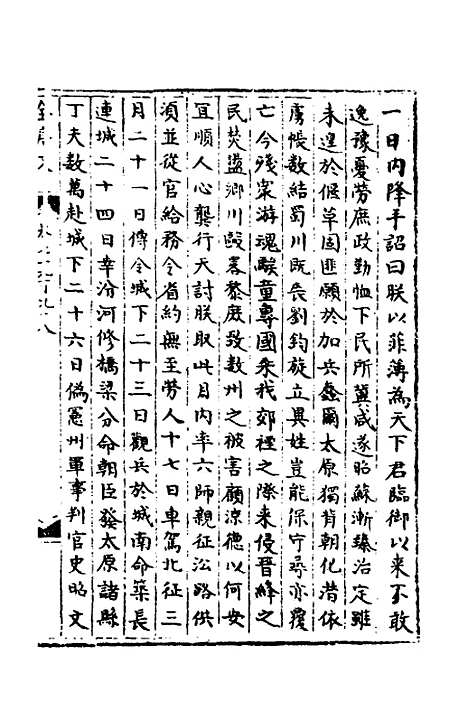 一日内降手詔曰朕以菲薄為天下君臨御以来不敢
逸豫憂勞庶政勤恤下民所冀咸遂昭蘇漸臻治定雖
未遑於偃草固匪願於加兵蠢爾太原獨背朝化潜依
虜帳數結蜀川既喪劉鈞旋立異姓豈能保守尋亦覆
亡今殘寇游魂騃童專國乘我郊禋之際来侵晉絳之
民焚盪鄉川毆畧黎庶致數州之被害顧涼德以何安
宜順人心龔行天討朕取此月内率六師親征沿路供
湏並從官給務令省約無至勞人十七日車駕北征三
月二十一日傅令城下二十三日觀兵於城南命築長
連城二十四日幸汾河修橋梁分命朝臣發太原諸縣
丁夫數萬赴城下二十六日偽憲州軍事判官史昭文